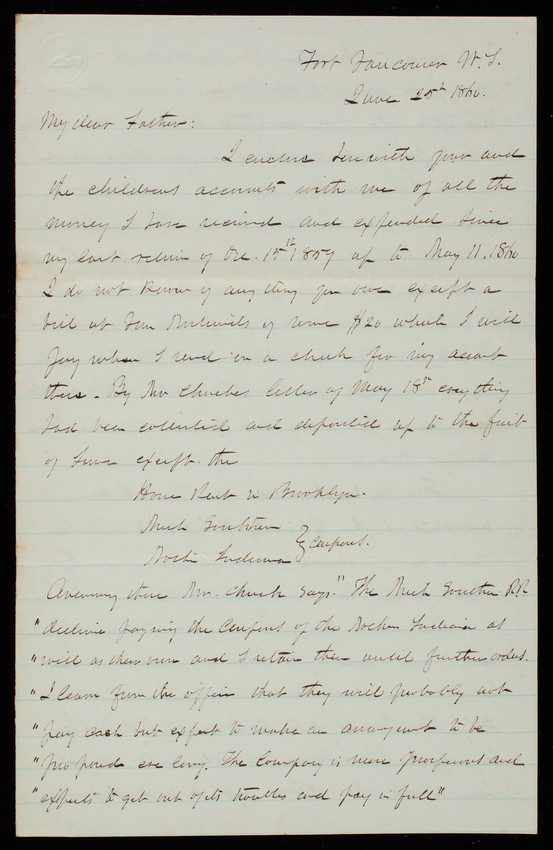 Fort Vancouver W.T.
June 25th 1860.
My dear Father:
I enclose herewith your and
the childrens accounts with me of all the
money I have received and expended since
my last return of Dec. 15th 1859 up to May 11. 1860
I do not know of any thing you owe except a
bill at Van of some $20 which I will
pay when I send in a check for my account
there. By Mr Churches letter of May 18th everything
had been collected and deposited up to the first
of June except the
House Rent in Brooklyn.
Mich Southern
North Indiana } Coupons.
there Mr. Church says. "The Mich Southern R.R.
"decline paying the Coupons of the Northn Indiana as
"well as their own and I retain them until further orders.
"I learn from the office that they will probably not
"pay cash but expect to make an arrangmt to be
"proposed ere long. The Company is more prosperous and
"expects to get out of its troubles and pay in full"